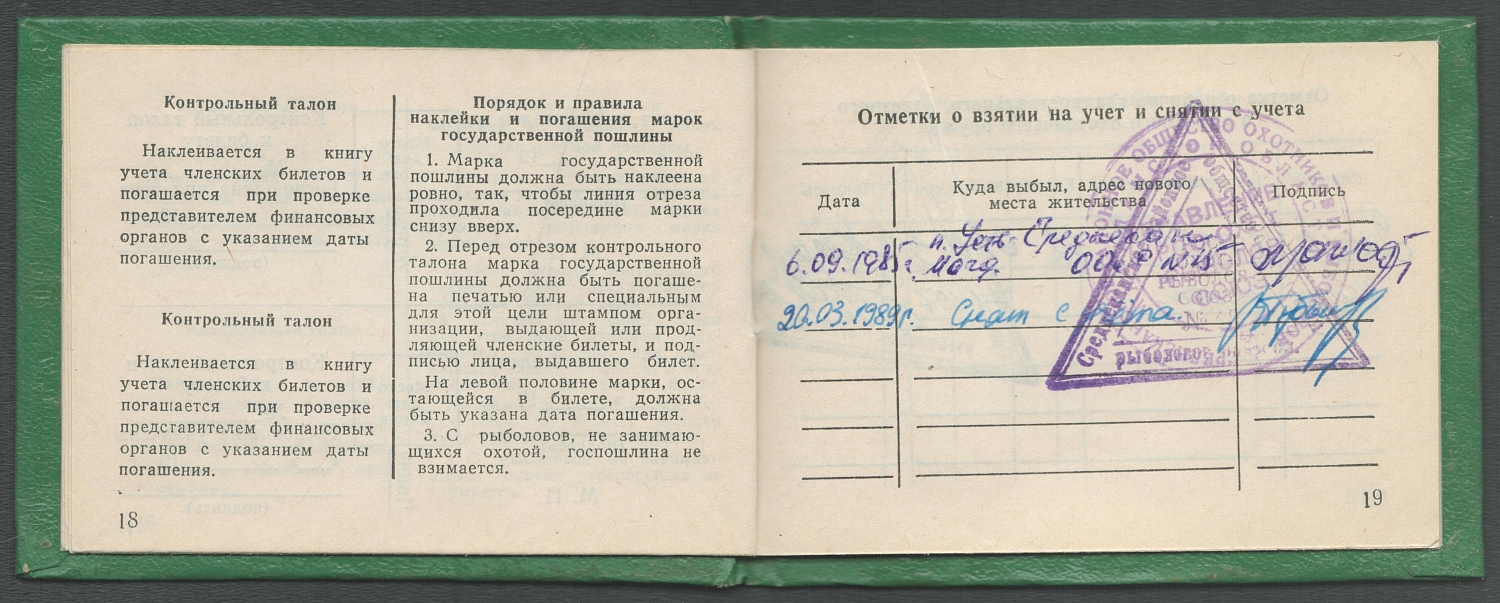 Контрольный талон
Наклеивается в книгу
учета членских билетов и
погашается при проверке
представителем финансовых
органов с указанием даты
погашения.
Контрольный талон
Наклеивается в книгу
учета членских билетов и
погашается при проверке
представителем финансовых
органов с указанием даты
погашения.
18
Порядок и правила
наклейки и погашения марок
государственной пошлины
1. Марка государственной
пошлины должна быть наклеена
ровно, так, чтобы линия отреза
проходила посередине марки
снизу вверх.
2. Перед отрезом контрольного
талона марка государственной
пошлины должна быть погаше-
на печатью или специальным
для этой цели штампом орга-
низации, выдающей или прод-
ляющей членские билеты, и под-
писью лица, выдавшего билет.
На левой половине марки, ос-
тающейся в билете, должна
быть указана дата погашения.
3. С рыболовов, не занимаю-
щихся охотой, госпошлина не
взимается.
Отметки о взятии на учет и снятии с учета
Дата
Куда выбыл, адрес нового
места жительства
Подпись
п. Усть Среднекан
6.09.1985г. Магад.
20.03.1989г. Снят с учёта.
19